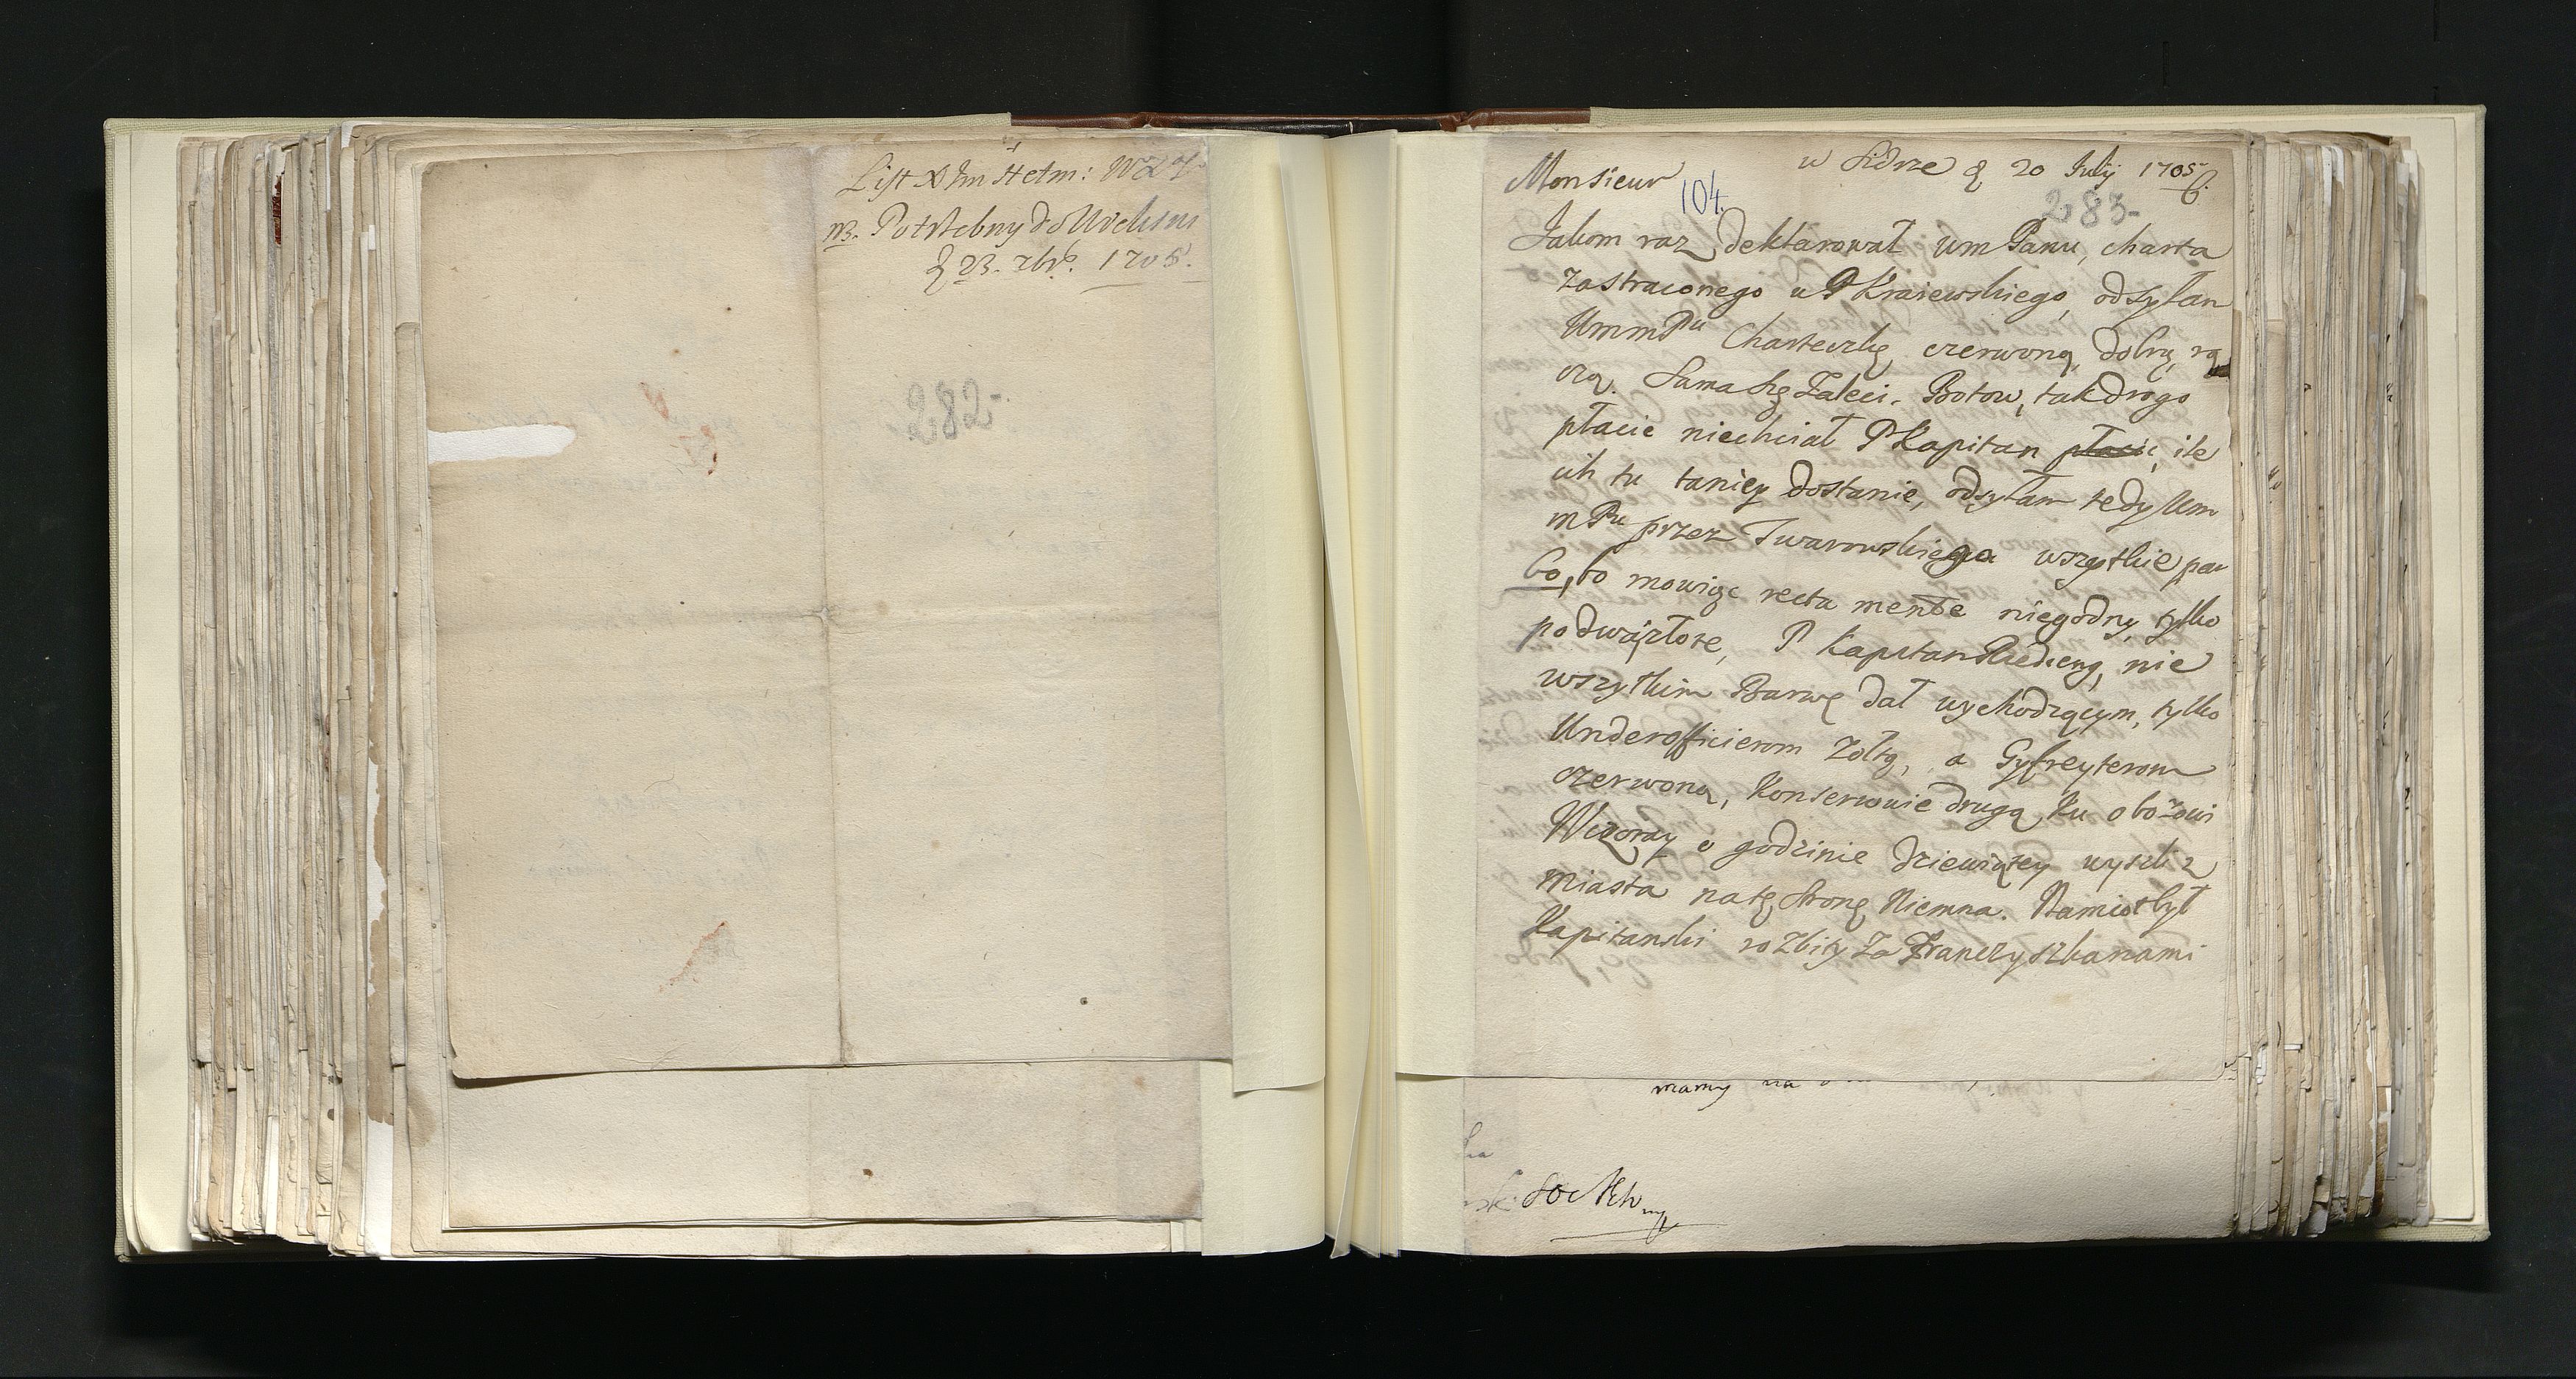 List X Jm Hetm:
NB. Potrzebny do
d 23. 7br. 1705.
282
w Sidrze d 20 Julij 1705
Monsieur
104.
283
Jakom raz deklarował Wm Panu, charta
zastraconego u P Kraiewskiego, odsyłam
Wm mPu Charteczkę czerwoną, dobrą, rą
czą. Sama się zaleci. Botow, tak drogo
płacic niechciał P Kapitan płacic, ile
ich tu taniey dostanie, odsyłam tedy Wm
mPu przez Twarowskiego wszystkie par
60, bo mowiąc recta mente niegodny, tylko
podwązłote, P Kapitan nie
wszytkim Barwę dał wychodzącym, tylko
Underofficierom żołtą, a Gyfreyterom
czerwoną, Konserwuie drugą, ku obozowi
Wczoray o godzinie dziewiątey wyszli z
miasta na tę stronę Niemna. Namiot był
Kapitanski rozbity za Franczyszkanami
mamy na